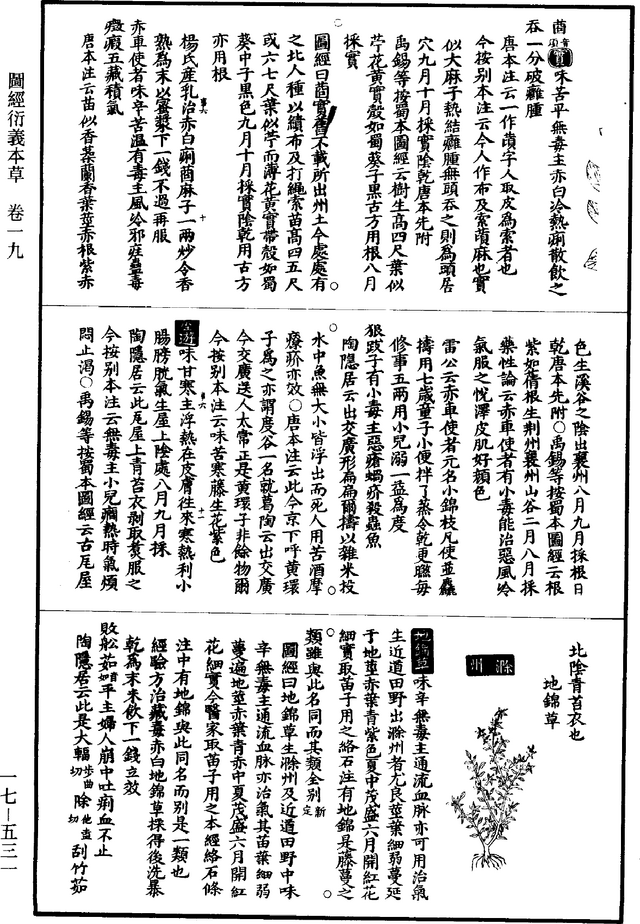 圖經衍義本草　卷一九
一七—五三一
莔音頃實味苦平無毒主赤白冷熱痢散飲之
吞一分破癰腫
唐本注云一作䔛字人取皮為索者也
今按別本注云今人作布及索䔛麻也實
似大麻子熱結癰腫無頭吞之則為頭居
穴九月十月採實陰乾唐本先附
禹錫等按蜀本圖經云樹生高四尺葉似
苧花黃實殼如蜀葵子黑古方用根八月
採實
圖經曰莔實舊不載所出州土今處處有
之北人種以績布及打繩索苗高四五尺
或六七尺葉似苧而薄花黃實帶殼如蜀
葵中子黑色九月十月採實陰乾用古方
亦用根
楊氏產乳治赤白痢莔麻子一兩炒令香
熟為末以蜜漿下一錢不過再服
赤車使者味辛苦溫有毒主風冷邪疰蠱毒
癥瘕五藏積氣
唐本注云苗似香葇蘭香葉莖赤根紫赤
色生溪谷之陰出襄州八月九月採根日
乾唐本先附○禹錫等按蜀本圖經云根
紫如蒨根生荆州襄州山谷二月八月採
藥性論云赤車使者有小毒能治惡風冷
氣服之悅澤皮肌好顏色
雷公云赤車使者元名小錦枝凡使並麤
擣用七歲童子小便拌了蒸令乾更曬每
修事五兩用小兒溺一溢為度
狼跋子有小毒主惡瘡蝸疥殺蟲魚
陶隱居云出交廣形扁扁爾擣以雜米投
水中魚無大小皆浮出而死人用苦酒摩
療疥亦效○唐本注云此今京下呼黃環
子為之亦謂度谷一名就葛陶云出交廣
今交廣送人太常正是黃環子非餘物爾
今按別本注云味苦寒藤生花紫色
屋遊味甘寒主浮熱在皮膚往來寒熱利小
腸膀胱氣生屋上陰處八月九月採
陶隱居云此瓦屋上青苔衣剝取煑服之
今按別本注云無毒主小兒癇熱時氣煩
悶止渴○禹錫等按蜀本圖經云古瓦屋
北陰青苔衣也
地錦草
滁州
地錦草味辛無毒主通流血脉亦可用治氣
生近道田野出滁州者尤良莖葉細弱蔓延
于地莖赤葉青紫色夏中茂盛六月開紅花
細實取苗子用之絡石注有地錦是藤蔓之
類雖與此名同而其類全別新定
圖經曰地錦草生滁州及近道田野中味
辛無毒主通流血脉亦治氣其苗葉細弱
蔓遍地莖赤葉青赤中夏茂盛六月開紅
花細實今醫家取苗子用之本經絡石條
注中有地錦與此同名而別是一類也
經驗方治藏毒赤白地錦草採得後洗暴
乾為末米飲下一錢立效
敗舩茹音如平主婦人崩中吐痢血不止
陶隱居云此是大艑步典切除他盍切刮竹茹